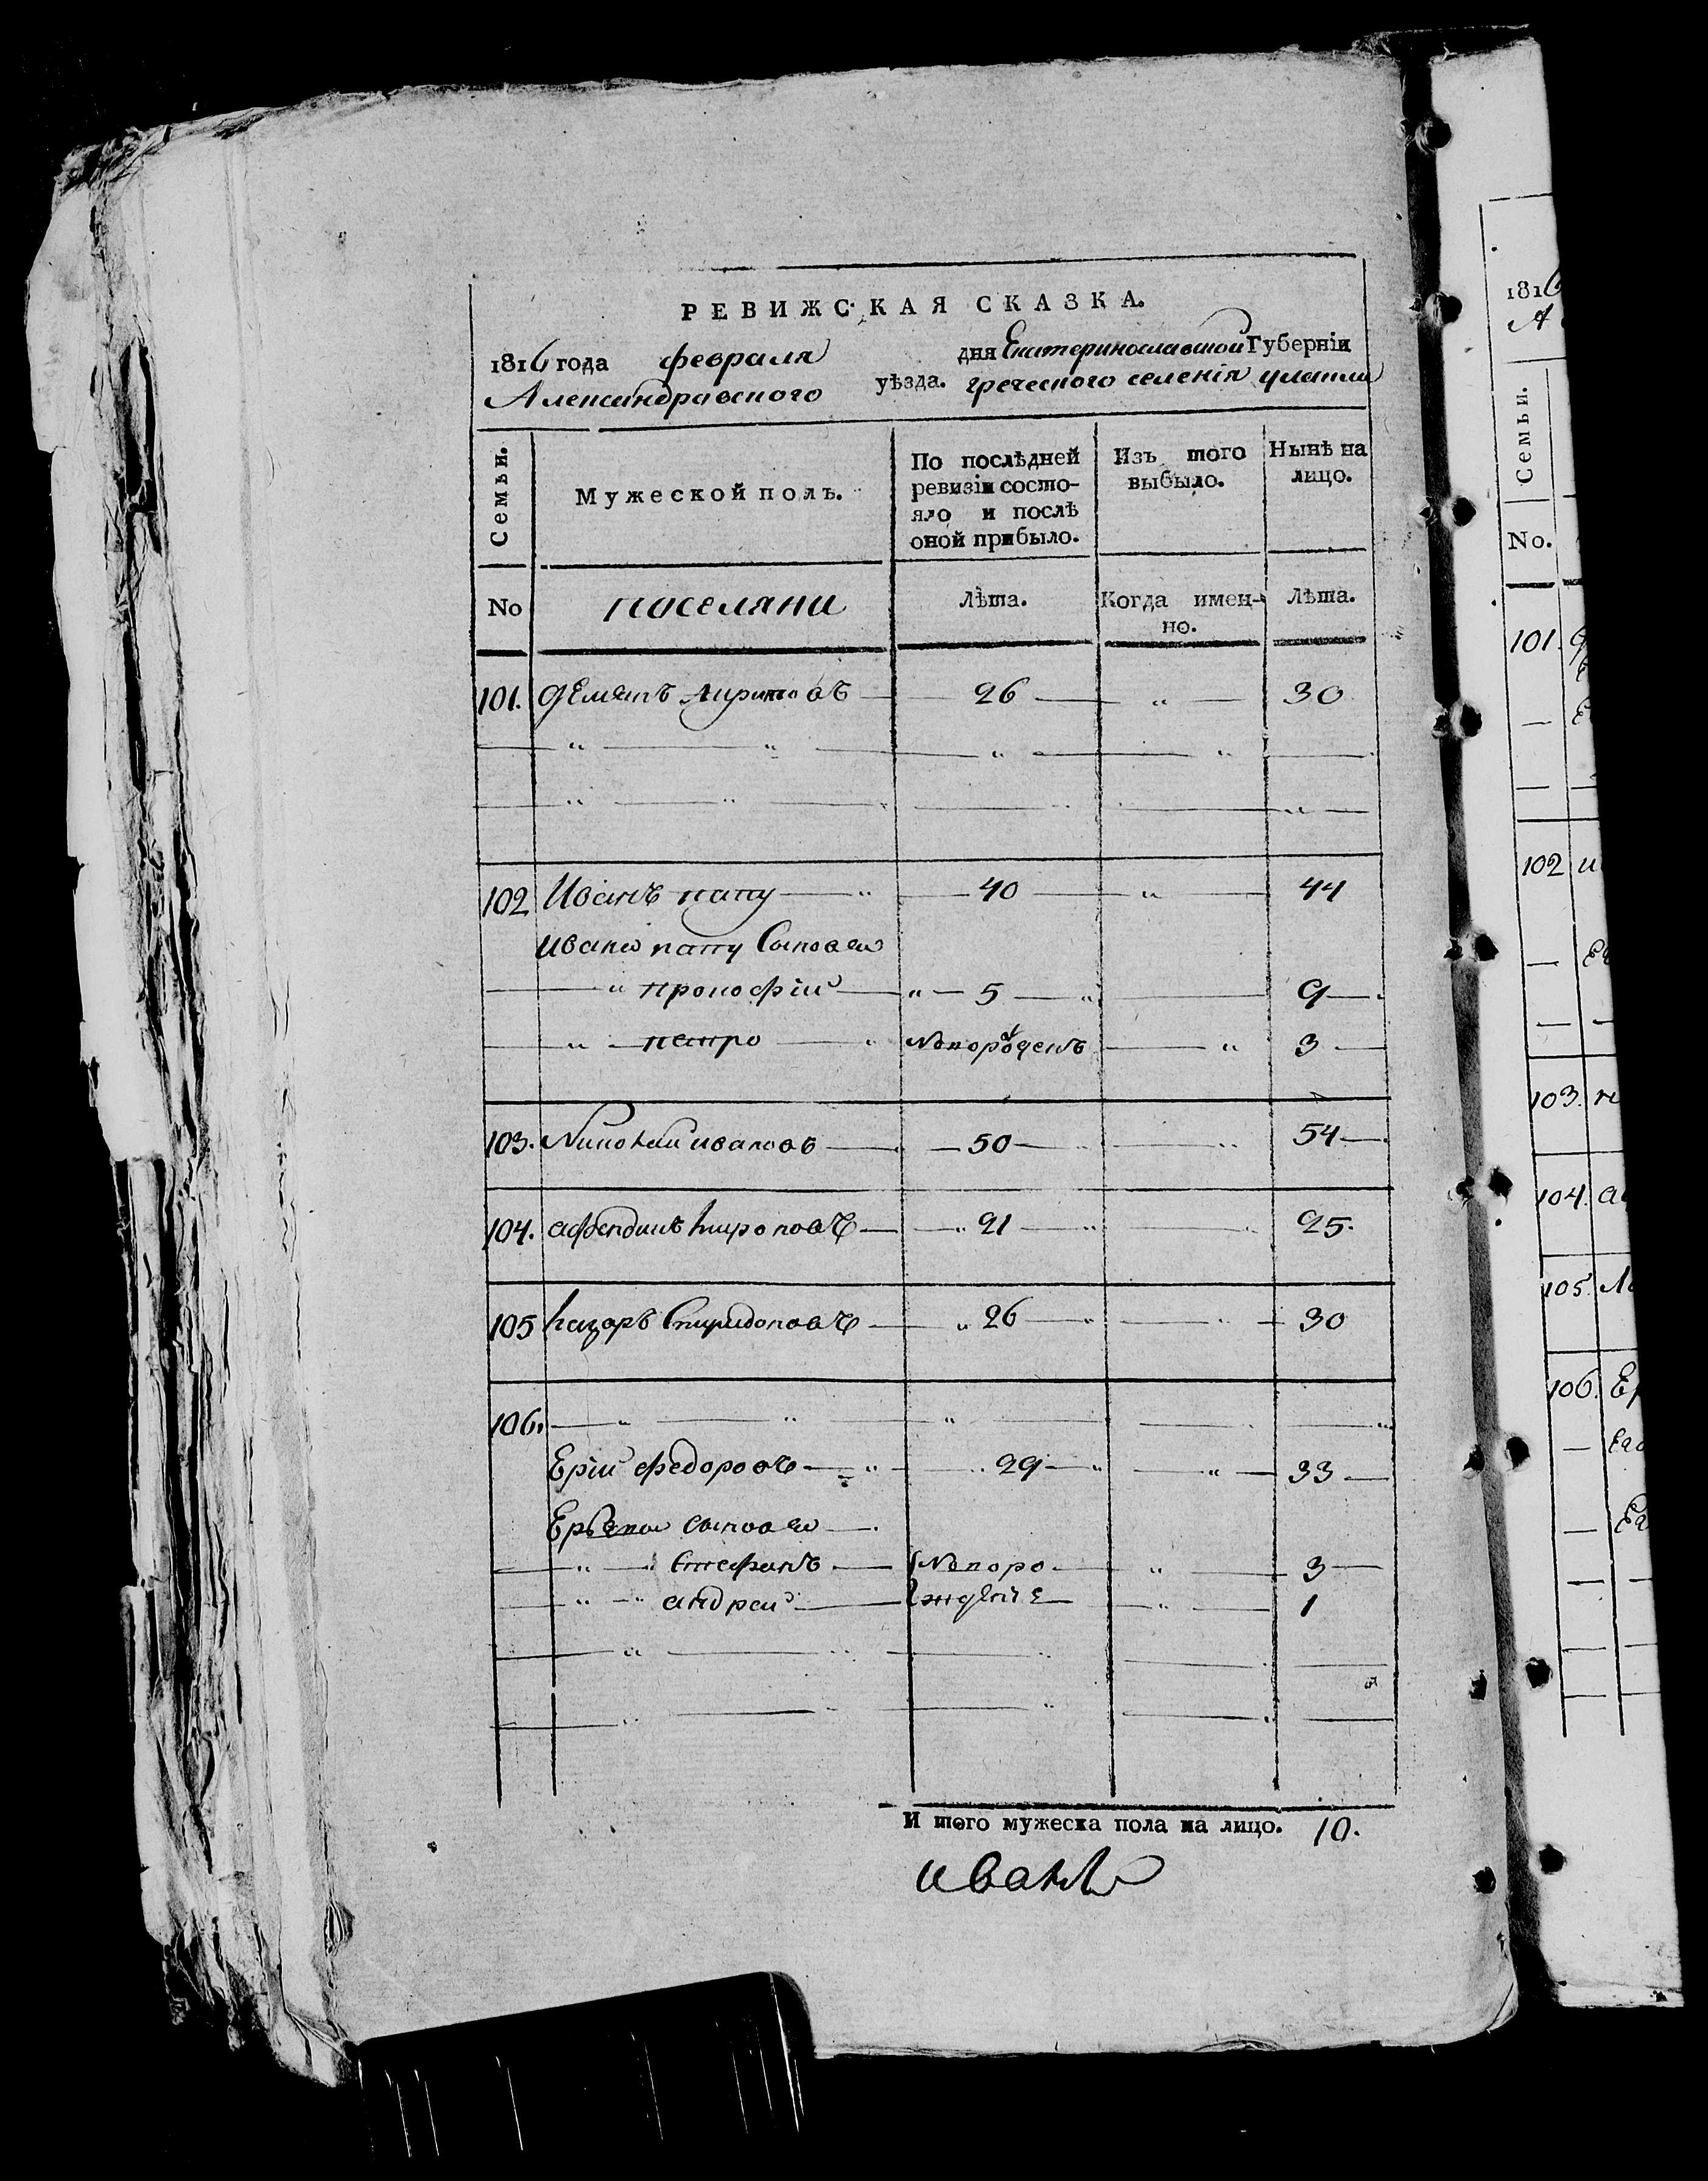 РЕВИЖСКАЯ СКАЗКА.
1816 года февраля дня Екатеринославской Губерніи
Александравского уѣзда. греческого селенія улаклы
Семьи.
Мужеской полъ.
По послѣдней ревизіи состо-
яло и послѣ
оной прибыло.
Изъ того выбыло.
Нынѣ на лицо.
No
поселяни
Лѣта.
Когда имен-
но.
Лѣта.
101. демянъ 26 " 30
102 Иванъ папу 40 " 44
ивана папу Сыновя
прокофій 5 9
петро новорожденъ 3
103. Николай ивановъ 50 54
104. афендикъ 21 25.
105 лазаръ Спиридоновъ 26 30
106.
Ерій федоровъ 29 33
сыновя
Стефанъ новоро 3
андрей жденіе 1
И того мужеска пола на лицо. 10.
иванъ
1816
А
Семьи.
No.
101.
102 и
103.
104. а
105.
106. Ер